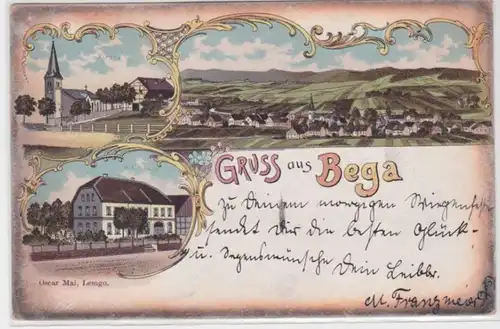 Gruss aus Bega
Zu Deinem morgigen Wiegenfeste
sendet Dir die besten Glück-
u. Segenswünsche Dein Leibbr.
M. Franzmeier
Oscar Mai, Lemgo.